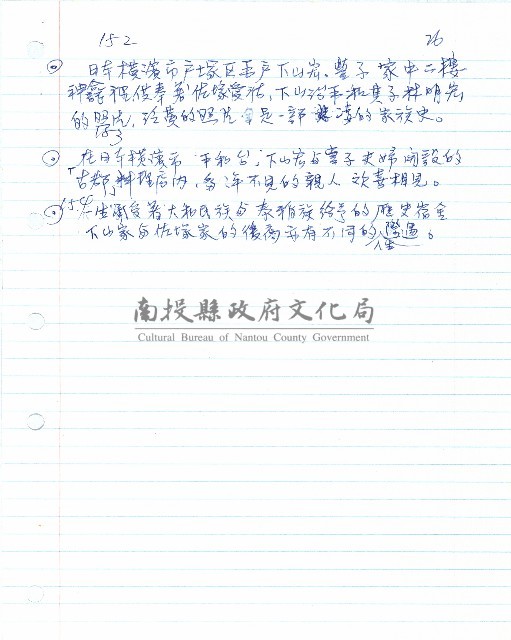 15-2 26
日本橫濱市戶塚区平戶下山宏、豐子家中二樓
神龕裡供奉著佐塚愛祐、下山治平和其子林明光
的照片,泛黃的照片是一部淒的家族史。
15-3
在日本橫濱市平和台,下山宏与豐子夫婦開設的
「古都」料理店內,多年不見的親人歡喜相見。
15-4 一生承受著大和民族与泰雅族給予的歷史宿命
下山家与佐塚家的後裔亦有不同的人生際遇。
南投縣政府文化局
Cultural Bureau of Nantou County Government